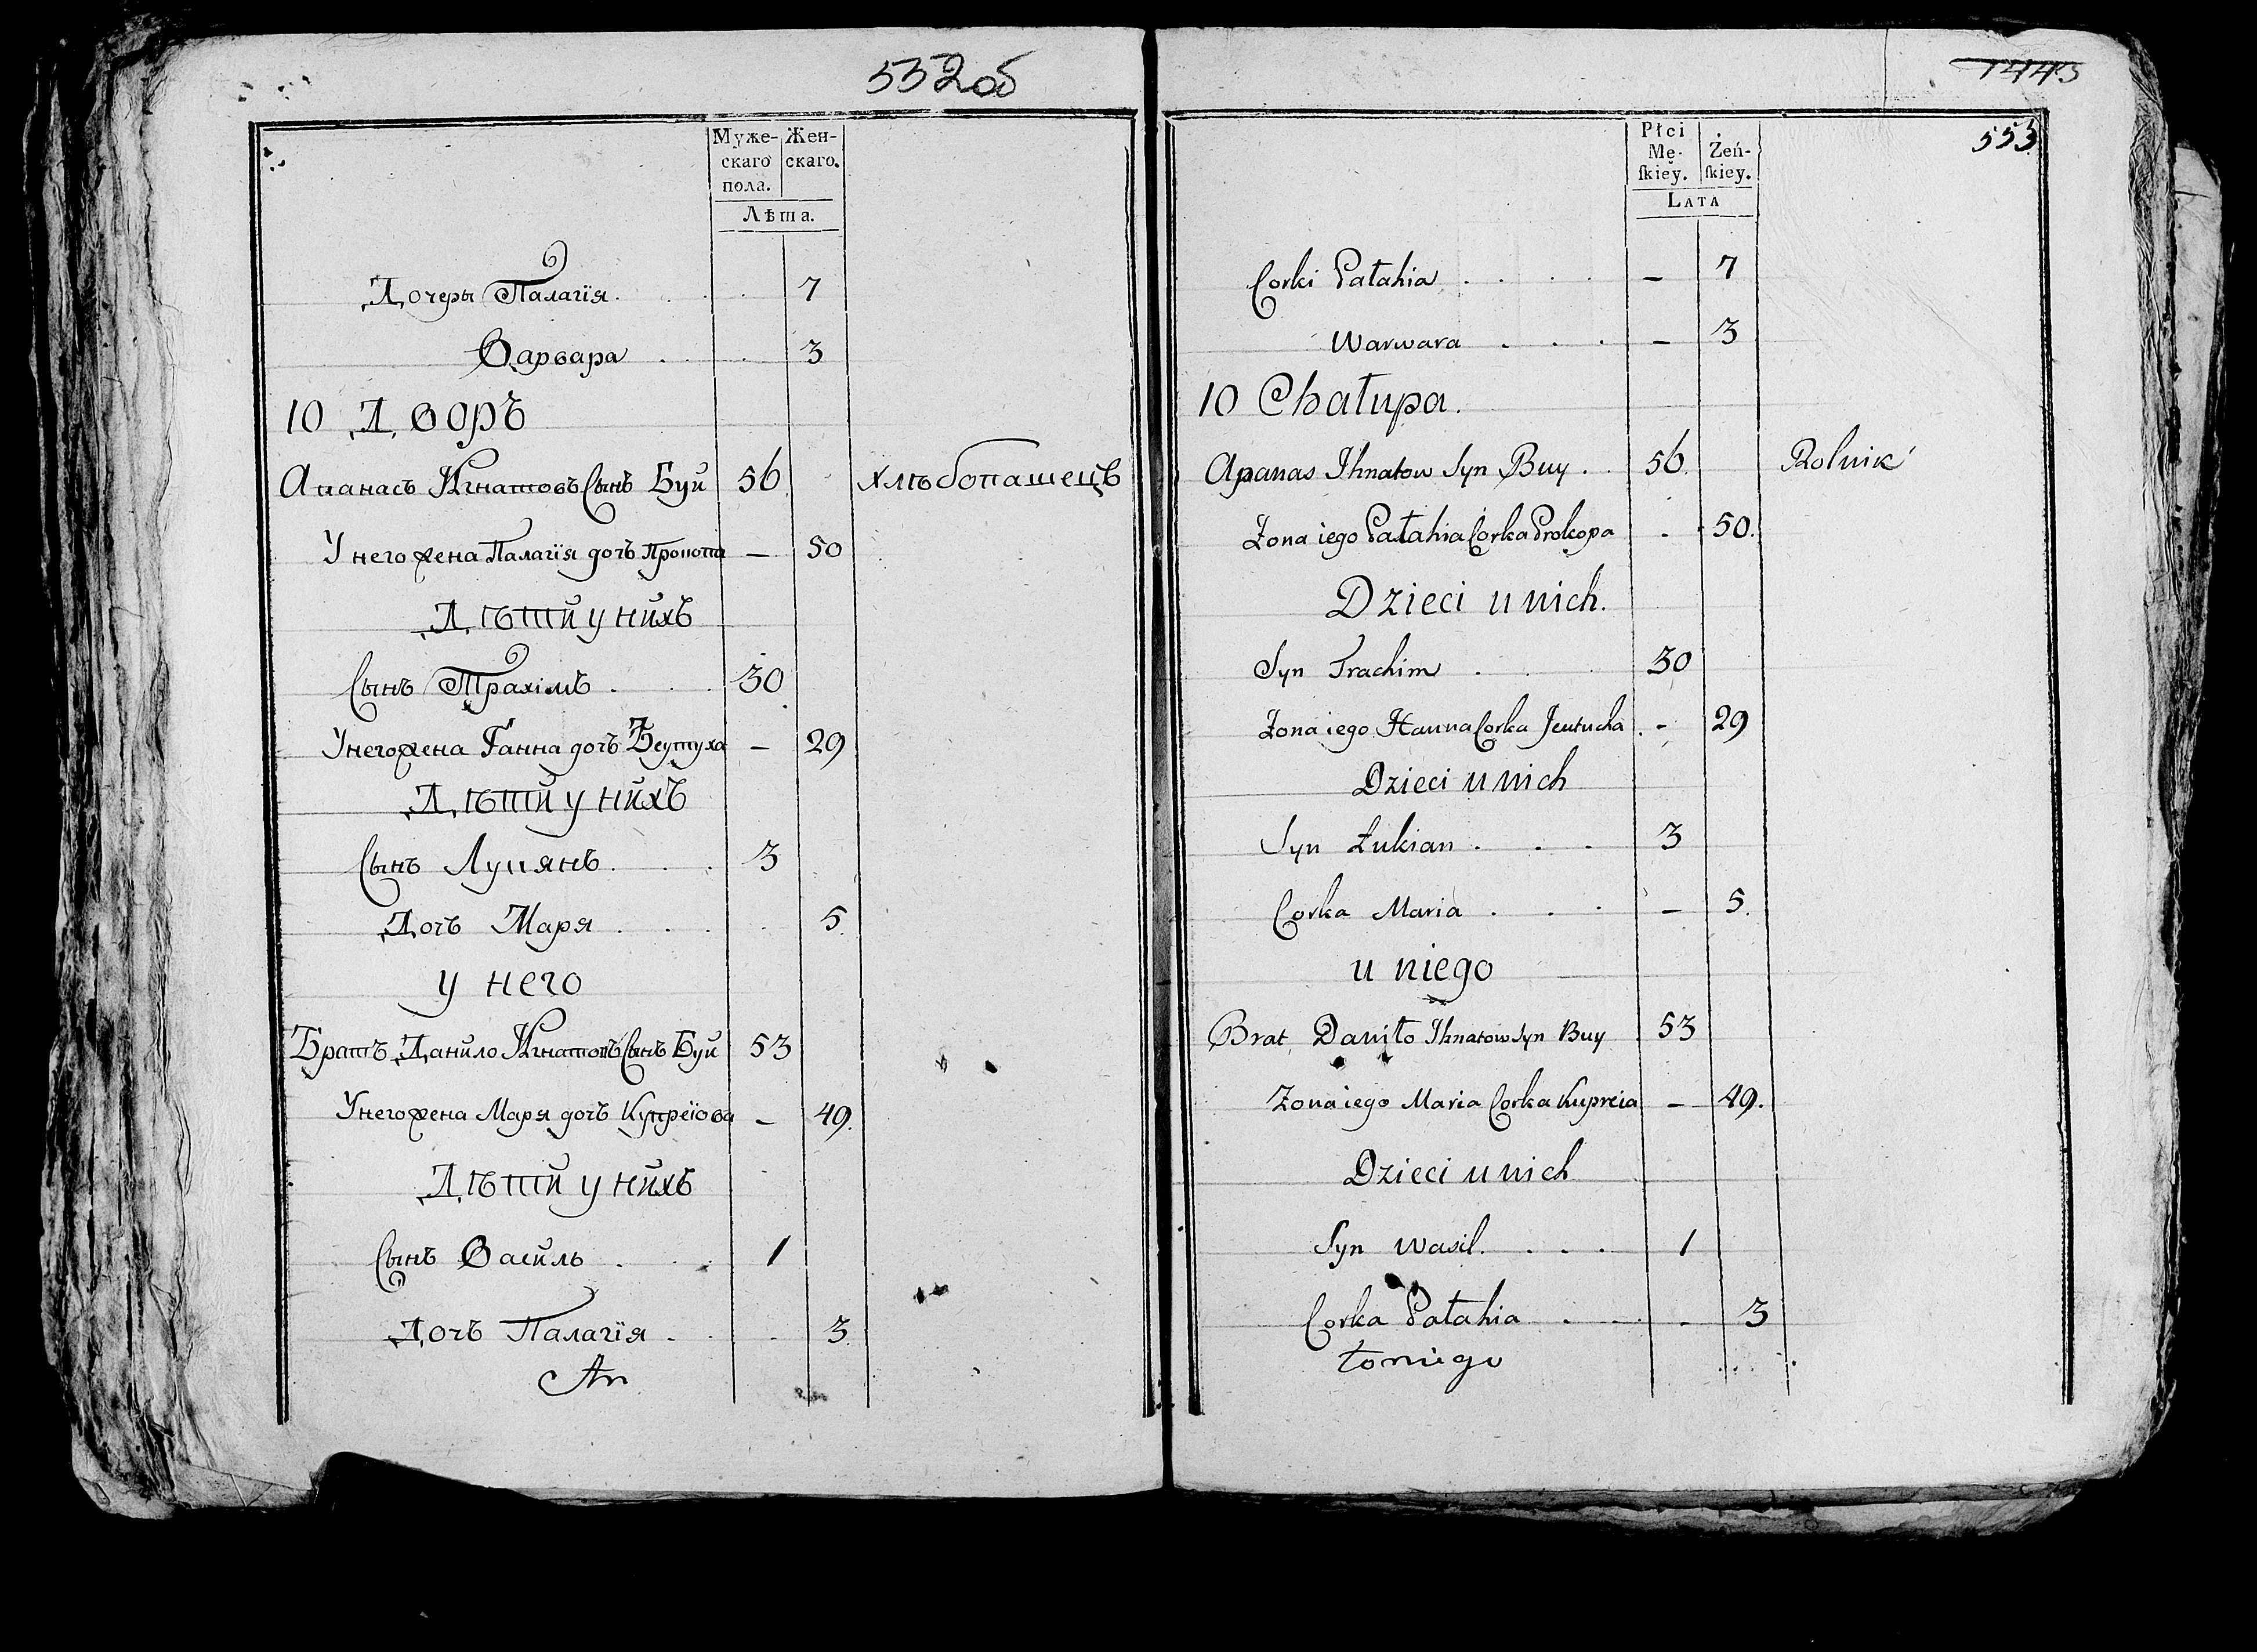 552об
Муже- Жен-
скаго скаго.
пола.
Лѣта.
Дочеры Палагія . . . 7
Варвара . . 3
10 Дворъ
Апанасъ Игнатовъ Сынъ Буй 56 хлѣбопашецъ
У него жена Палагія дочь Прокопа — 50
Дѣти у нихъ
Сынъ Трахімъ . . . 30
У него жена Ганна дочь — 29
Дѣти у нихъ
Сынъ Лукянъ . . . 3
Дочь Маря . . . 5.
у него
Братъ Данило Игнатовъ Сынъ Буй 53
У него жена Маря дочь Купреіова — 49.
Дѣти у нихъ
Сынъ Василь . . . 1
Дочь Палагія . . . 3.
1443
553
Płci
Mę- Żeń-
ſkiey. ſkiey.
LATA
Corki Pałahia . . . . — 7
Warwara . . . — 3
10 Chałupa.
Apanas Ihnatow Syn Buy . . 56. Rolnik
Żona iego Pałahia Corka Prokopa - 50.
Dzieci u nich.
Syn Trachim . . 30
Żona iego Hanna Corka Jewtucha . - 29
Dzieci u nich
Syn Łukian . . . 3
Corka Maria . . . — 5.
u niego
Brat Daniło Ihnatow Syn Buy 53
Żona iego Maria Corka Kupreia — 49.
Dzieci u nich
Syn Wasil. . . . 1
Corka Pałahia . . . - 3